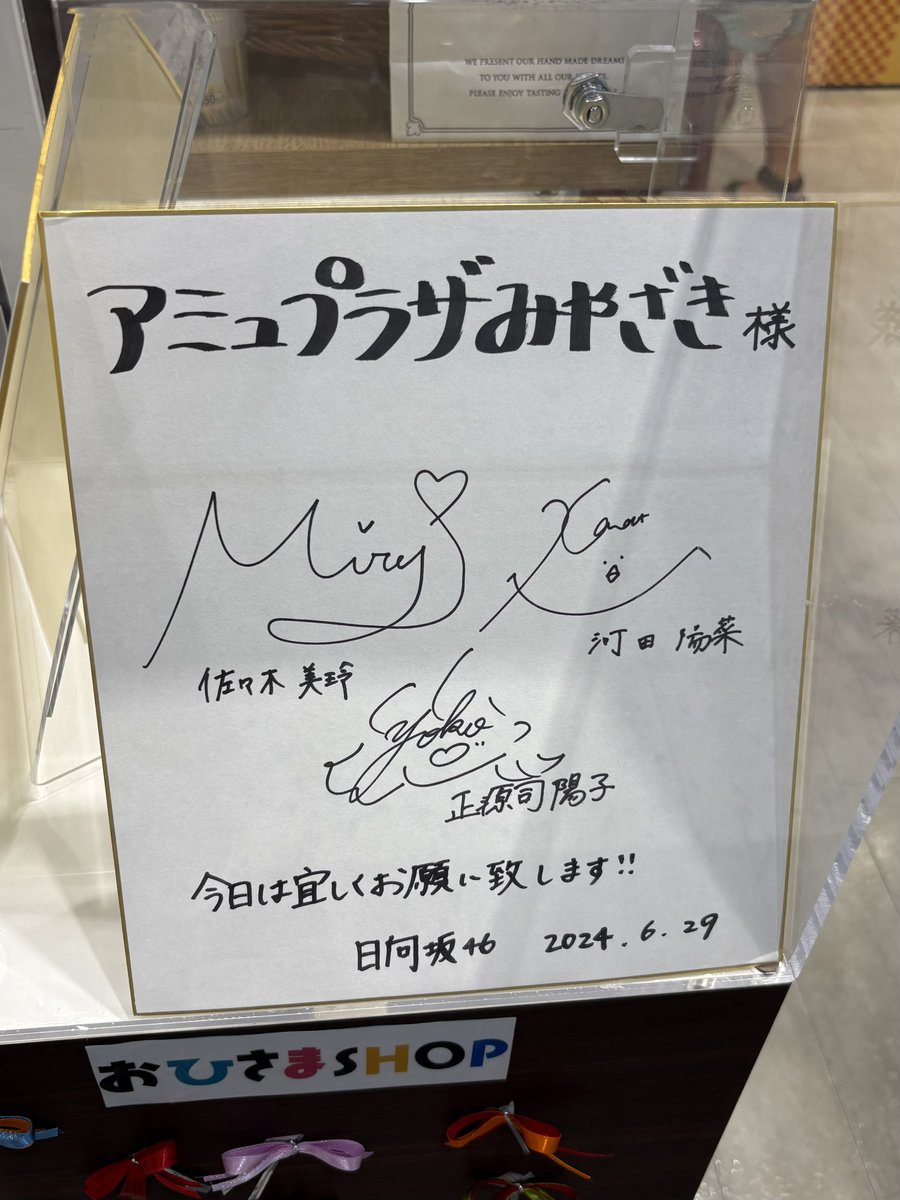 WE PRESENT OUR HAND MADE DREAMS
TO YOU WITH ALL OUR
PLEASE ENJOY TASTING
アミュプラザみやざき様
Mirey
Kana
佐々木美玲
河田陽菜
yoko
正源司陽子
今日は宜しくお願い致します!!
日向坂46 2024.6.29
おひさまSHOP